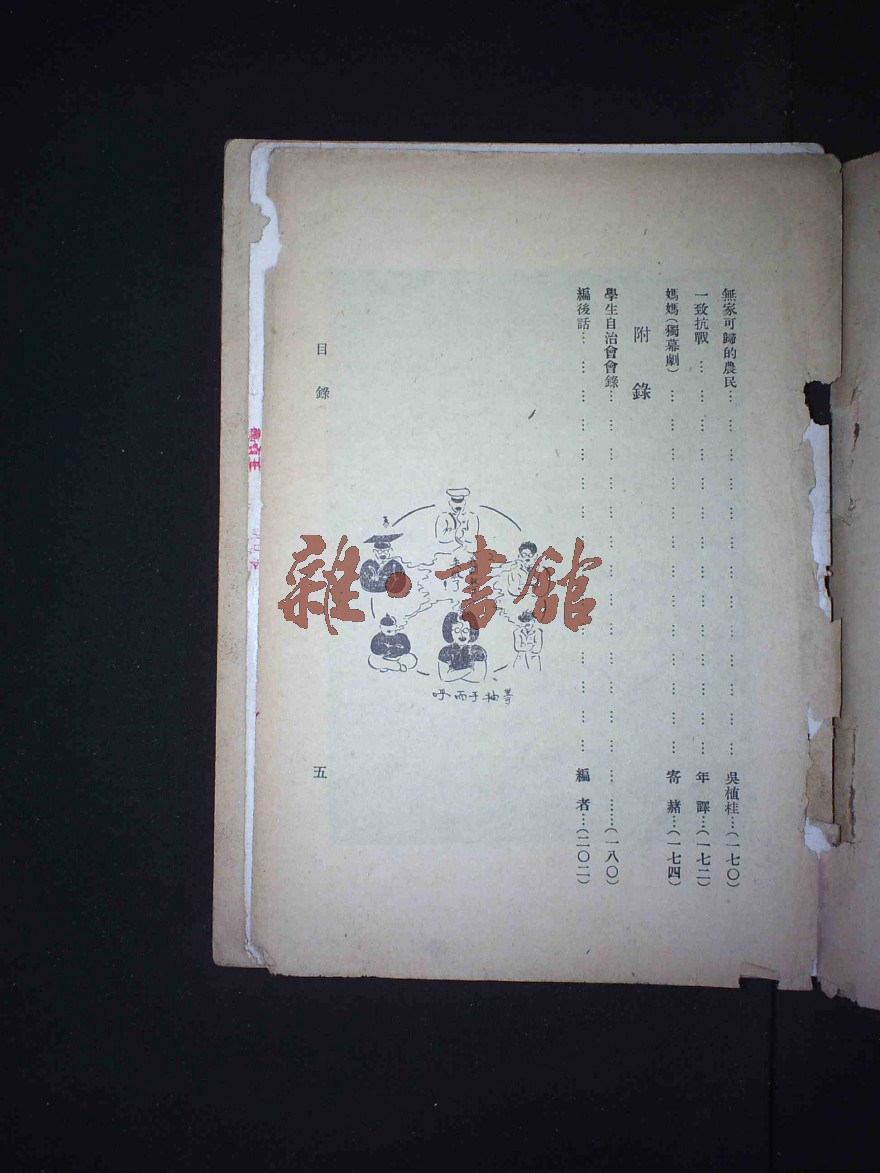 無家可歸的農民………………………………吳植桂…(一七〇)
一致抗戰………………………………年譯…(一七二)
媽媽(獨幕劇)………………………………寄赭…(一七四)
附錄
學生自治會會錄………………………………(一八〇)
編後話………………………………編者…(二〇二)
目錄
五
雜·書館